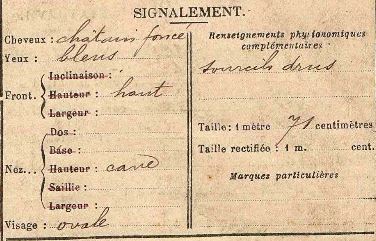 SIGNALEMENT.
Cheveux : châtain foncé
Yeux : bleus
Front.
Inclinaison :
Hauteur : haut
Largeur :
Nez...
Dos :
Base :
Hauteur : cave
Saillie :
Largeur :
Visage : ovale
Renseignements physionomiques
complémentaires
sourcils drus
Taille : 1 mètre 71 centimètres
Taille rectifiée : 1 m. cent.
Marques particulières